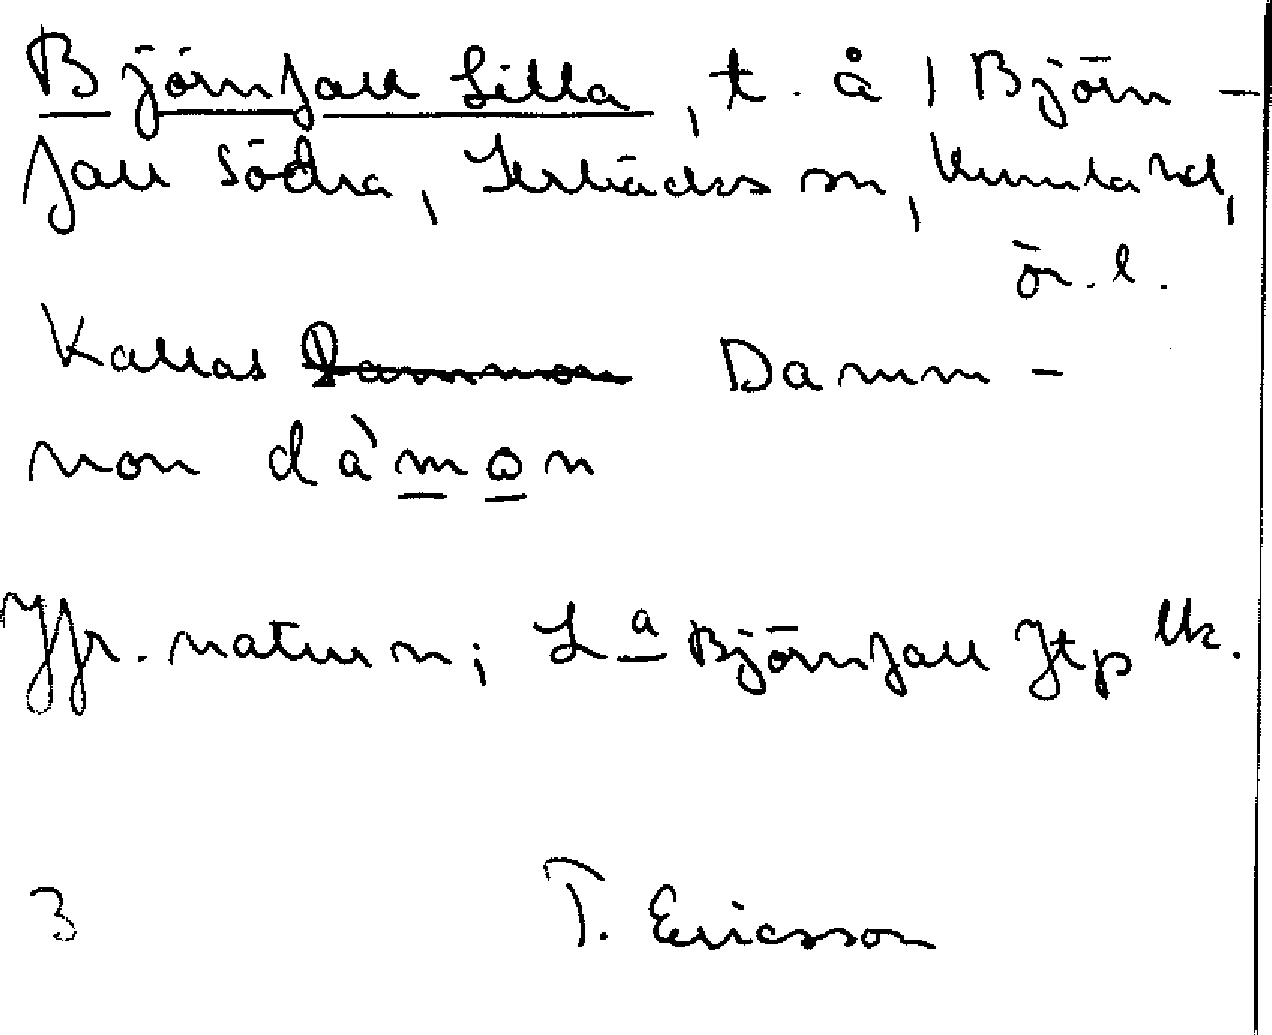 Björnfall Lilla, t. å 1 Björn-
fall Södra, Lerbäcks sn, Kumla hd,
Ör. l.
Kallas Dammmon Damm-
mon dà'mo̲n
Jfr. naturn; La Björnfall Jtp Uk.
3 T. Ericsson